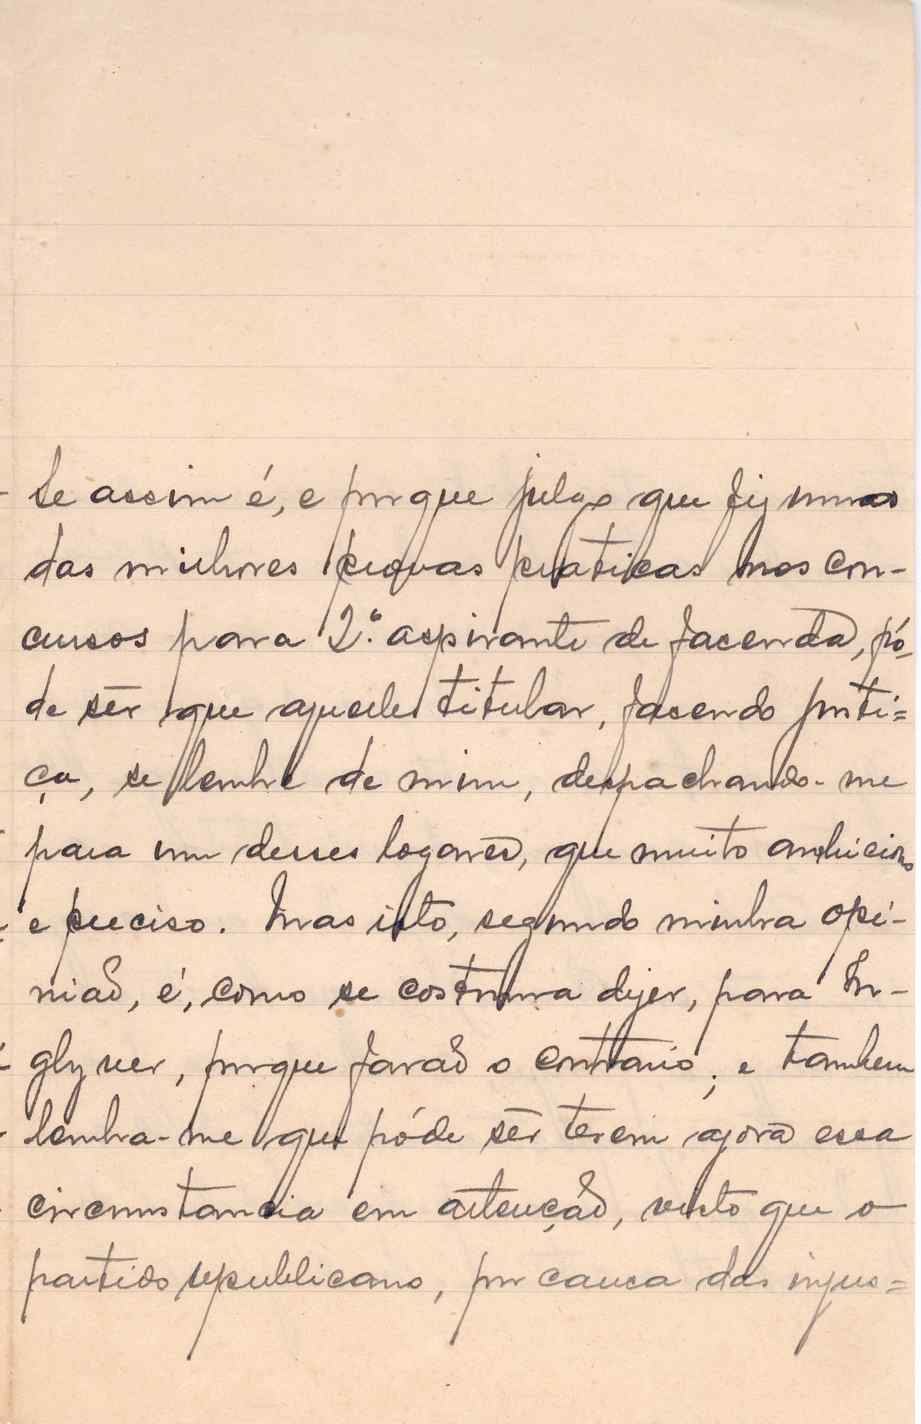 Se assim é, e porque julgo que fiz umas
das milhores provas praticas nos con-
cursos para 2.º aspirante de facenda, pó-
de sêr que aquele titular, facendo justi=
ça, se lembre de mim, despachando-me
para um desses logares, que muito ambiciono
e preciso. Mas isto, segundo minha opi-
nião, é, como se costuma dizer, para In-
glez ver, porque farão o contrario; e tambem
lembra-me que póde sêr terem agora essa
circumstancia em atenção, visto que o
partido republicano, por causa das injus=